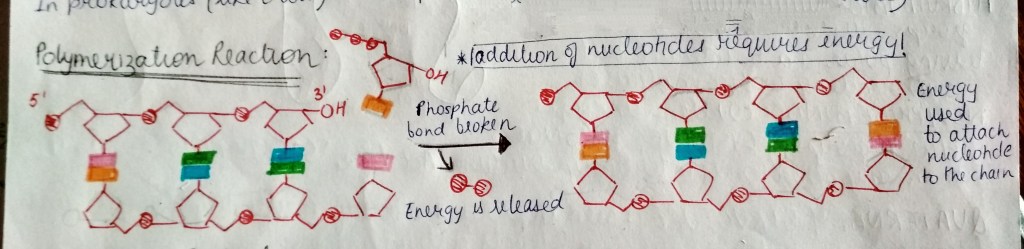 In prokaryotes (like
Polymerization Reaction:
*(addition of nucleotides requires energy!
OH
5'
3'
OH
Phosphate
bond broken
Energy is released
Energy
used
to attach
nucleotide
to the chain